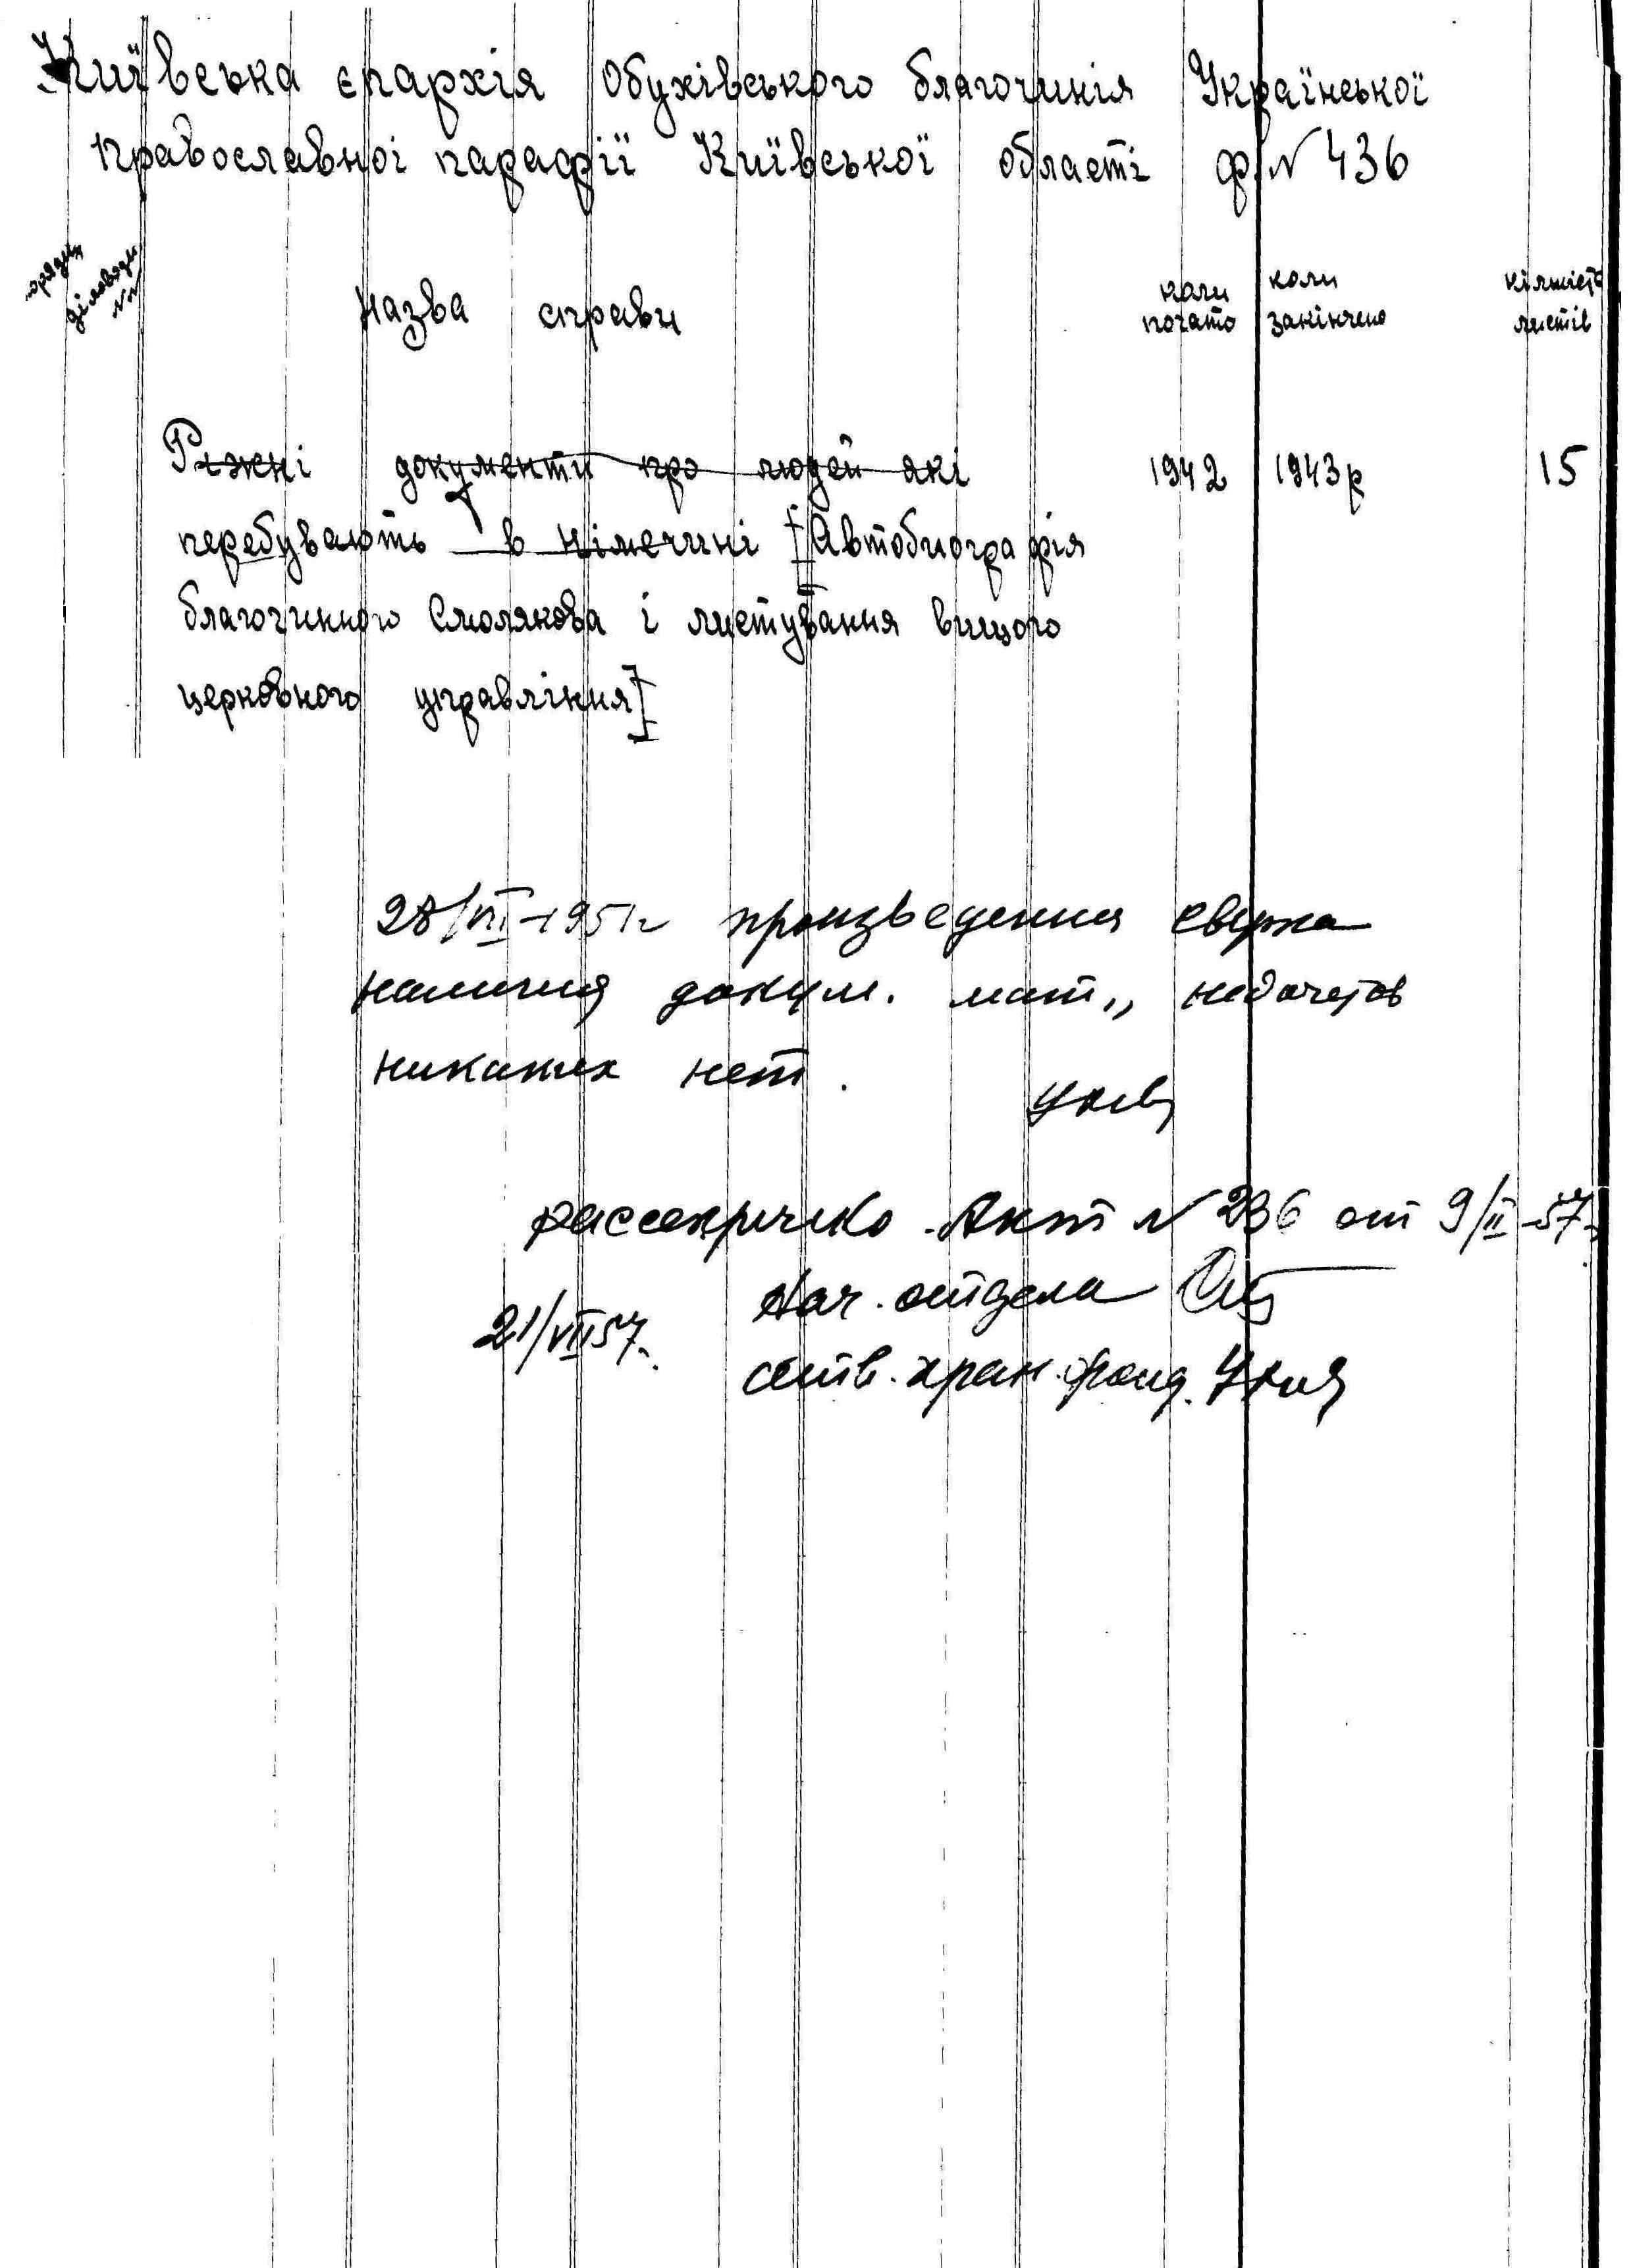 Київська єпархія Обухівського благочинія Української
православної парафії Київської області ф. N 436
порядк
діловодн
NN
Назва справи
коли
почато
коли
закінчено
кількість
листів
Ріжні документи про людей які 1942 1943р 15
перебувають в німеччині [Автобиографія
благочинного Смолякова і листування вищого
церковного управління]
28/VII-1951г произведения сверка
наличия докум. мат., недочетов
никаких нет.
рассекречено. Акт N 236 от 9/II-57г.
Нач. отдела
21/VII57г.
ответв. хран. фонд.